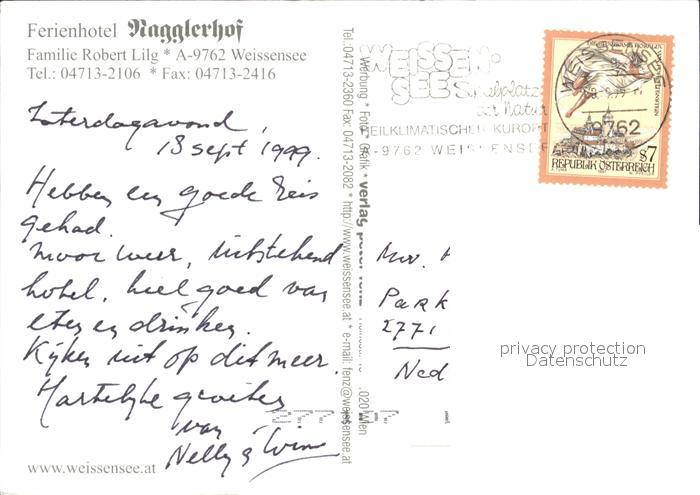 Ferienhotel Nagglerhof
Familie Robert Lilg * A-9762 Weissensee
Tel.: 04713-2106 * Fax: 04713-2416
Zaterdagavond,
18 sept 1999.
Hebben een goede reis
gehad.
Mooi weer, uitstekend
hotel, heel goed van
eten en drinken.
Kijken uit op dit meer.
Hartelijke groeten
van
Nelly & Wim
www.weissensee.at
Werbung * Foto * Grafik * verlag peter fenz
Tel: 04713-2360 Fax: 04713-2082 * http://www.weissensee.at * e-mail: fenz@weissensee.at
WEISSEN-
SEE Spielplatz
der Natur
HEILKLIMATISCHER KURORT
A-9762 WEISSENSEE
9762
S7
REPUBLIK ÖSTERREICH
Park
2771
Ned
privacy protection
Datenschutz